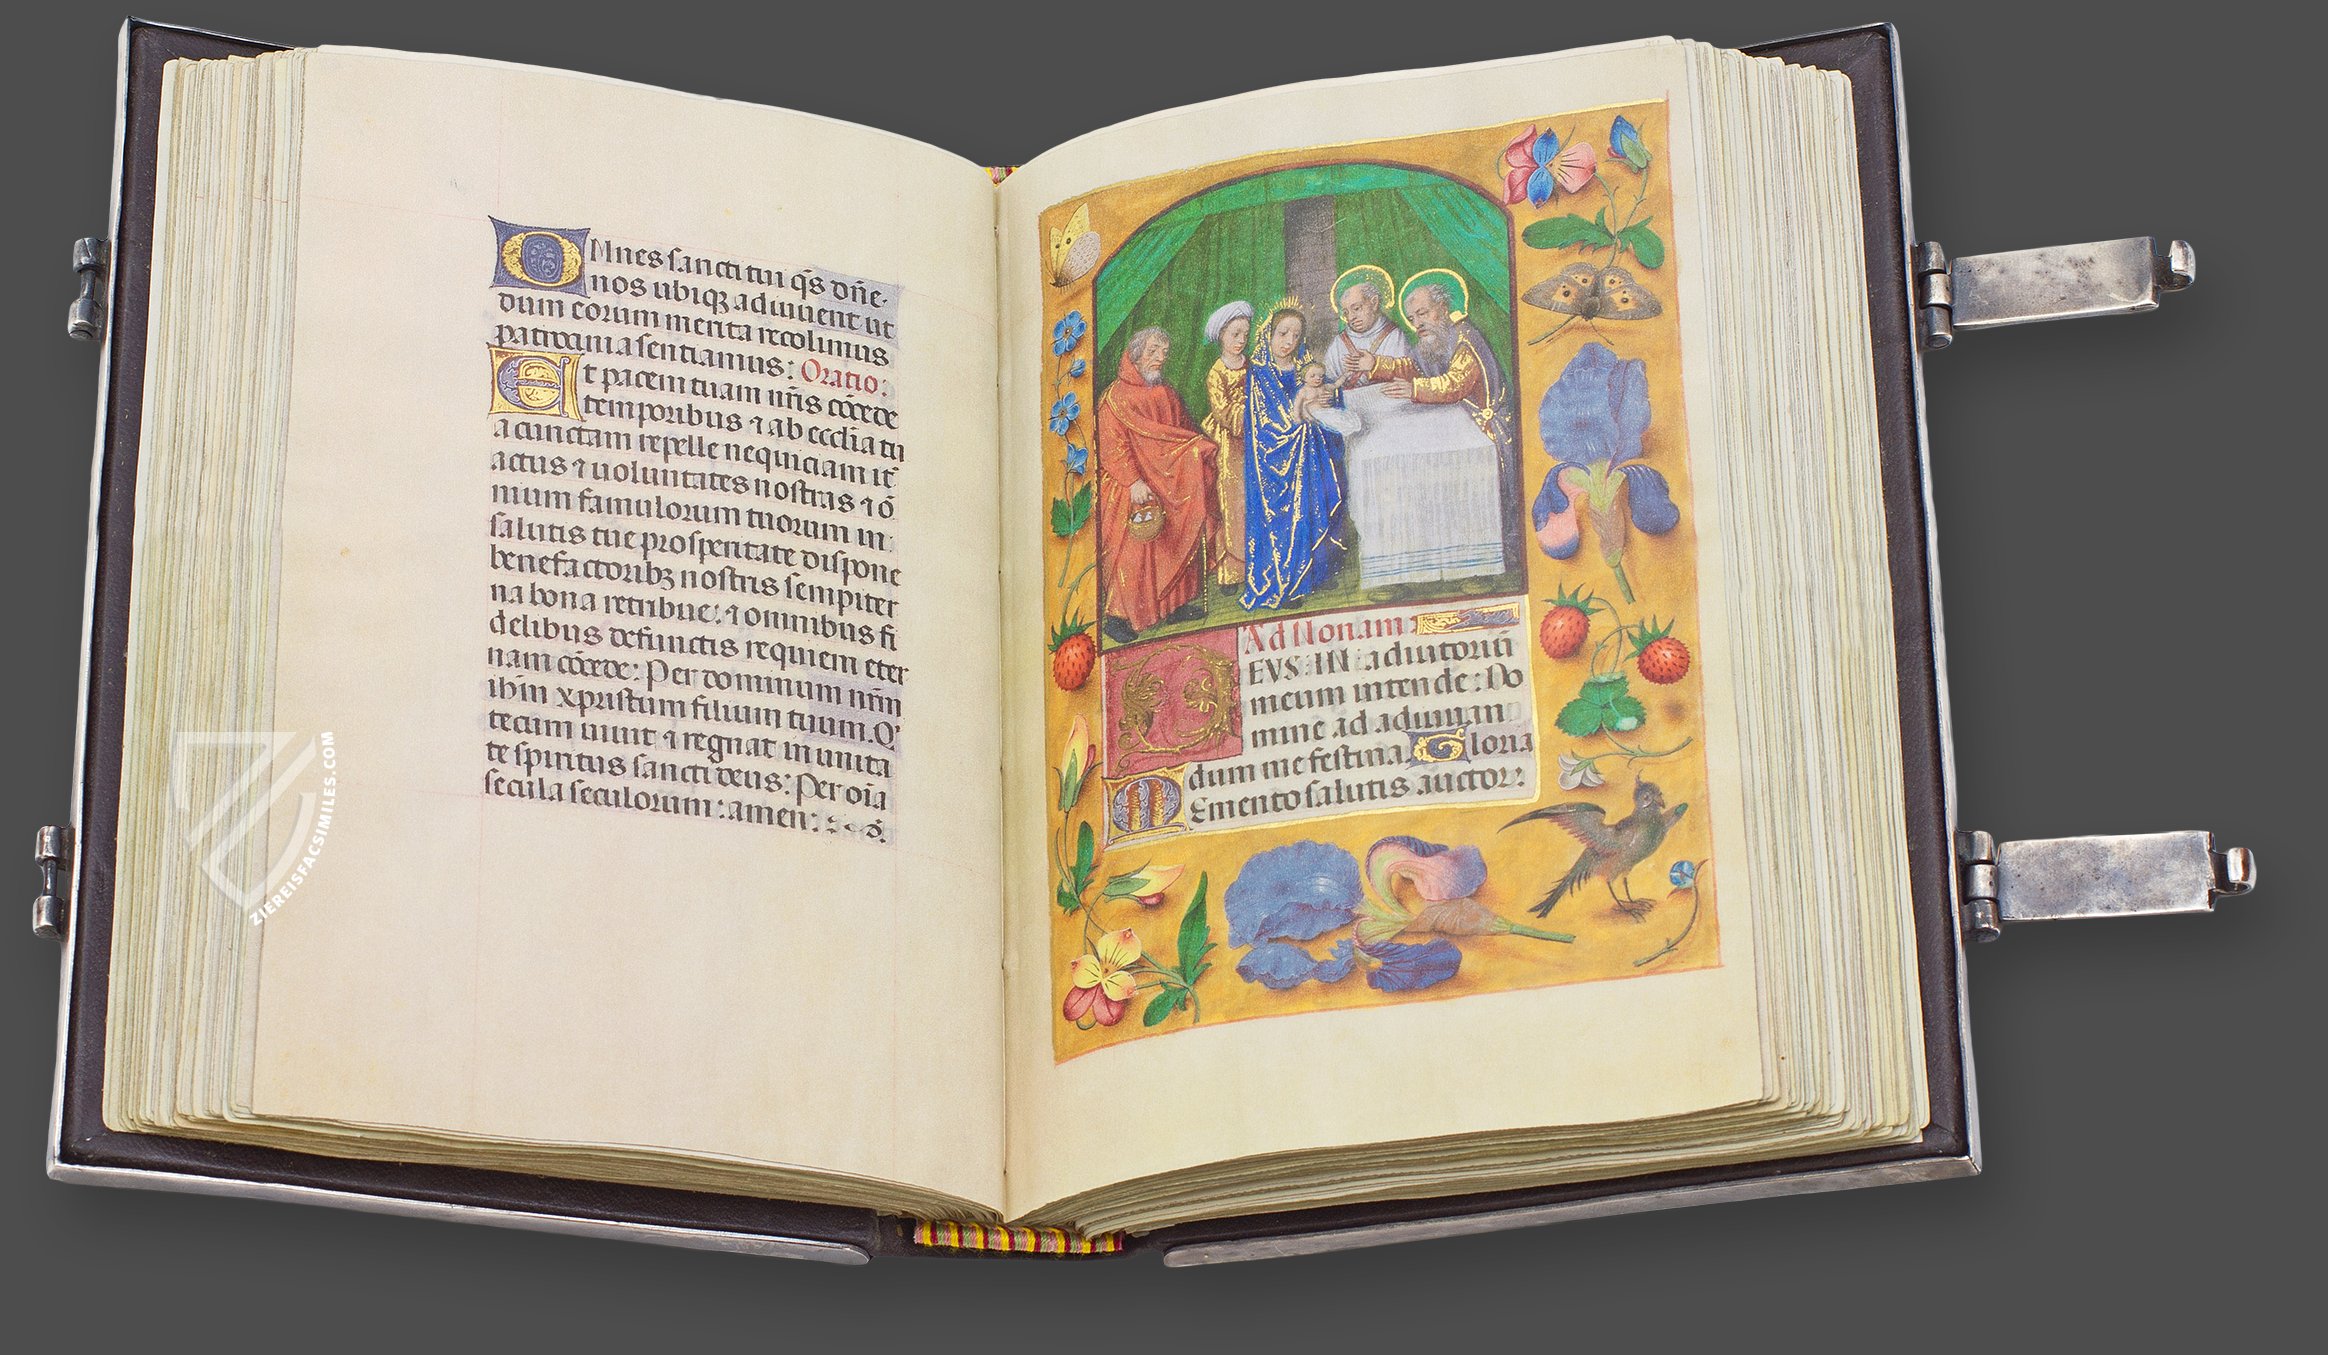 OMnes sancti tui qs̄ dn̄e·
nos ubiqꝫ adiuuent ut
dum eorum merita recolimus
patrocinia sentiamus: Oratio:
Et pacem tuam nr̄is cōcede
temporibus ⁊ ab eccl̄ia tu
a cunctam repelle nequiciam it̄
actus ⁊ uoluntates nostras ⁊ ō
nium famulorum tuorum in
salutis tue prosperitate dispone
benefactoribꝫ nostris sempiter
na bona retribue: ⁊ omnibus fi
delibus defunctis requiem eter
nam cōcede: Per dominum nr̄m
ih̄m xp̄ristum filium tuum. Q'
tecum uiuit ⁊ regnat in unita
te spiritus sancti deus: Per oīa
secula seculorum: amen:
Ad Nonam:
DEVS IN adiutoriū
meum intende: Do
mine ad adiuuan
dum me festina. Gloria
MEmento salutis auctor:
ZIEREISFACSIMILES.COM